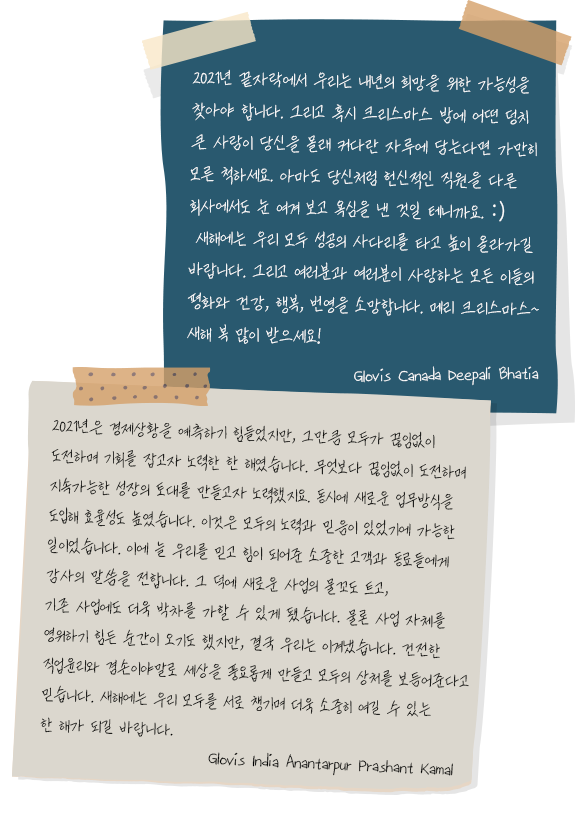 2021년 끝자락에서 우리는 내년의 희망을 위한 가능성을
찾아야 합니다. 그리고 혹시 크리스마스 밤에 어떤 덩치
큰 사람이 당신을 몰래 커다란 자루에 담는다면 가만히
모른 척하세요. 아마도 당신처럼 헌신적인 직원을 다른
회사에서도 눈 여겨 보고 욕심을 낸 것일 테니까요. :)
새해에는 우리 모두 성공의 사다리를 타고 높이 올라가길
바랍니다. 그리고 여러분과 여러분이 사랑하는 모든 이들의
평화와 건강, 행복, 번영을 소망합니다. 메리 크리스마스~
새해 복 많이 받으세요!
Glovis Canada Deepali Bhatia
2021년은 경제상황을 예측하기 힘들었지만, 그만큼 모두가 끊임없이
도전하며 기회를 잡고자 노력한 한 해였습니다. 무엇보다 끊임없이 도전하며
지속가능한 성장의 토대를 만들고자 노력했지요. 동시에 새로운 업무방식을
도입해 효율성도 높였습니다. 이것은 모두의 노력과 믿음이 있었기에 가능한
일이었습니다. 이에 늘 우리를 믿고 힘이 되어준 소중한 고객과 동료들에게
감사의 말씀을 전합니다. 그 덕에 새로운 사업의 물꼬도 트고,
기존 사업에도 더욱 박차를 가할 수 있게 됐습니다. 물론 사업 자체를
영위하기 힘든 순간이 오기도 했지만, 결국 우리는 이겨냈습니다. 건전한
직업윤리와 겸손이야말로 세상을 풍요롭게 만들고 모두의 상처를 보듬어준다고
믿습니다. 새해에는 우리 모두를 서로 챙기며 더욱 소중히 여길 수 있는
한 해가 되길 바랍니다.
Glovis India Anantarpur Prashant Kamal